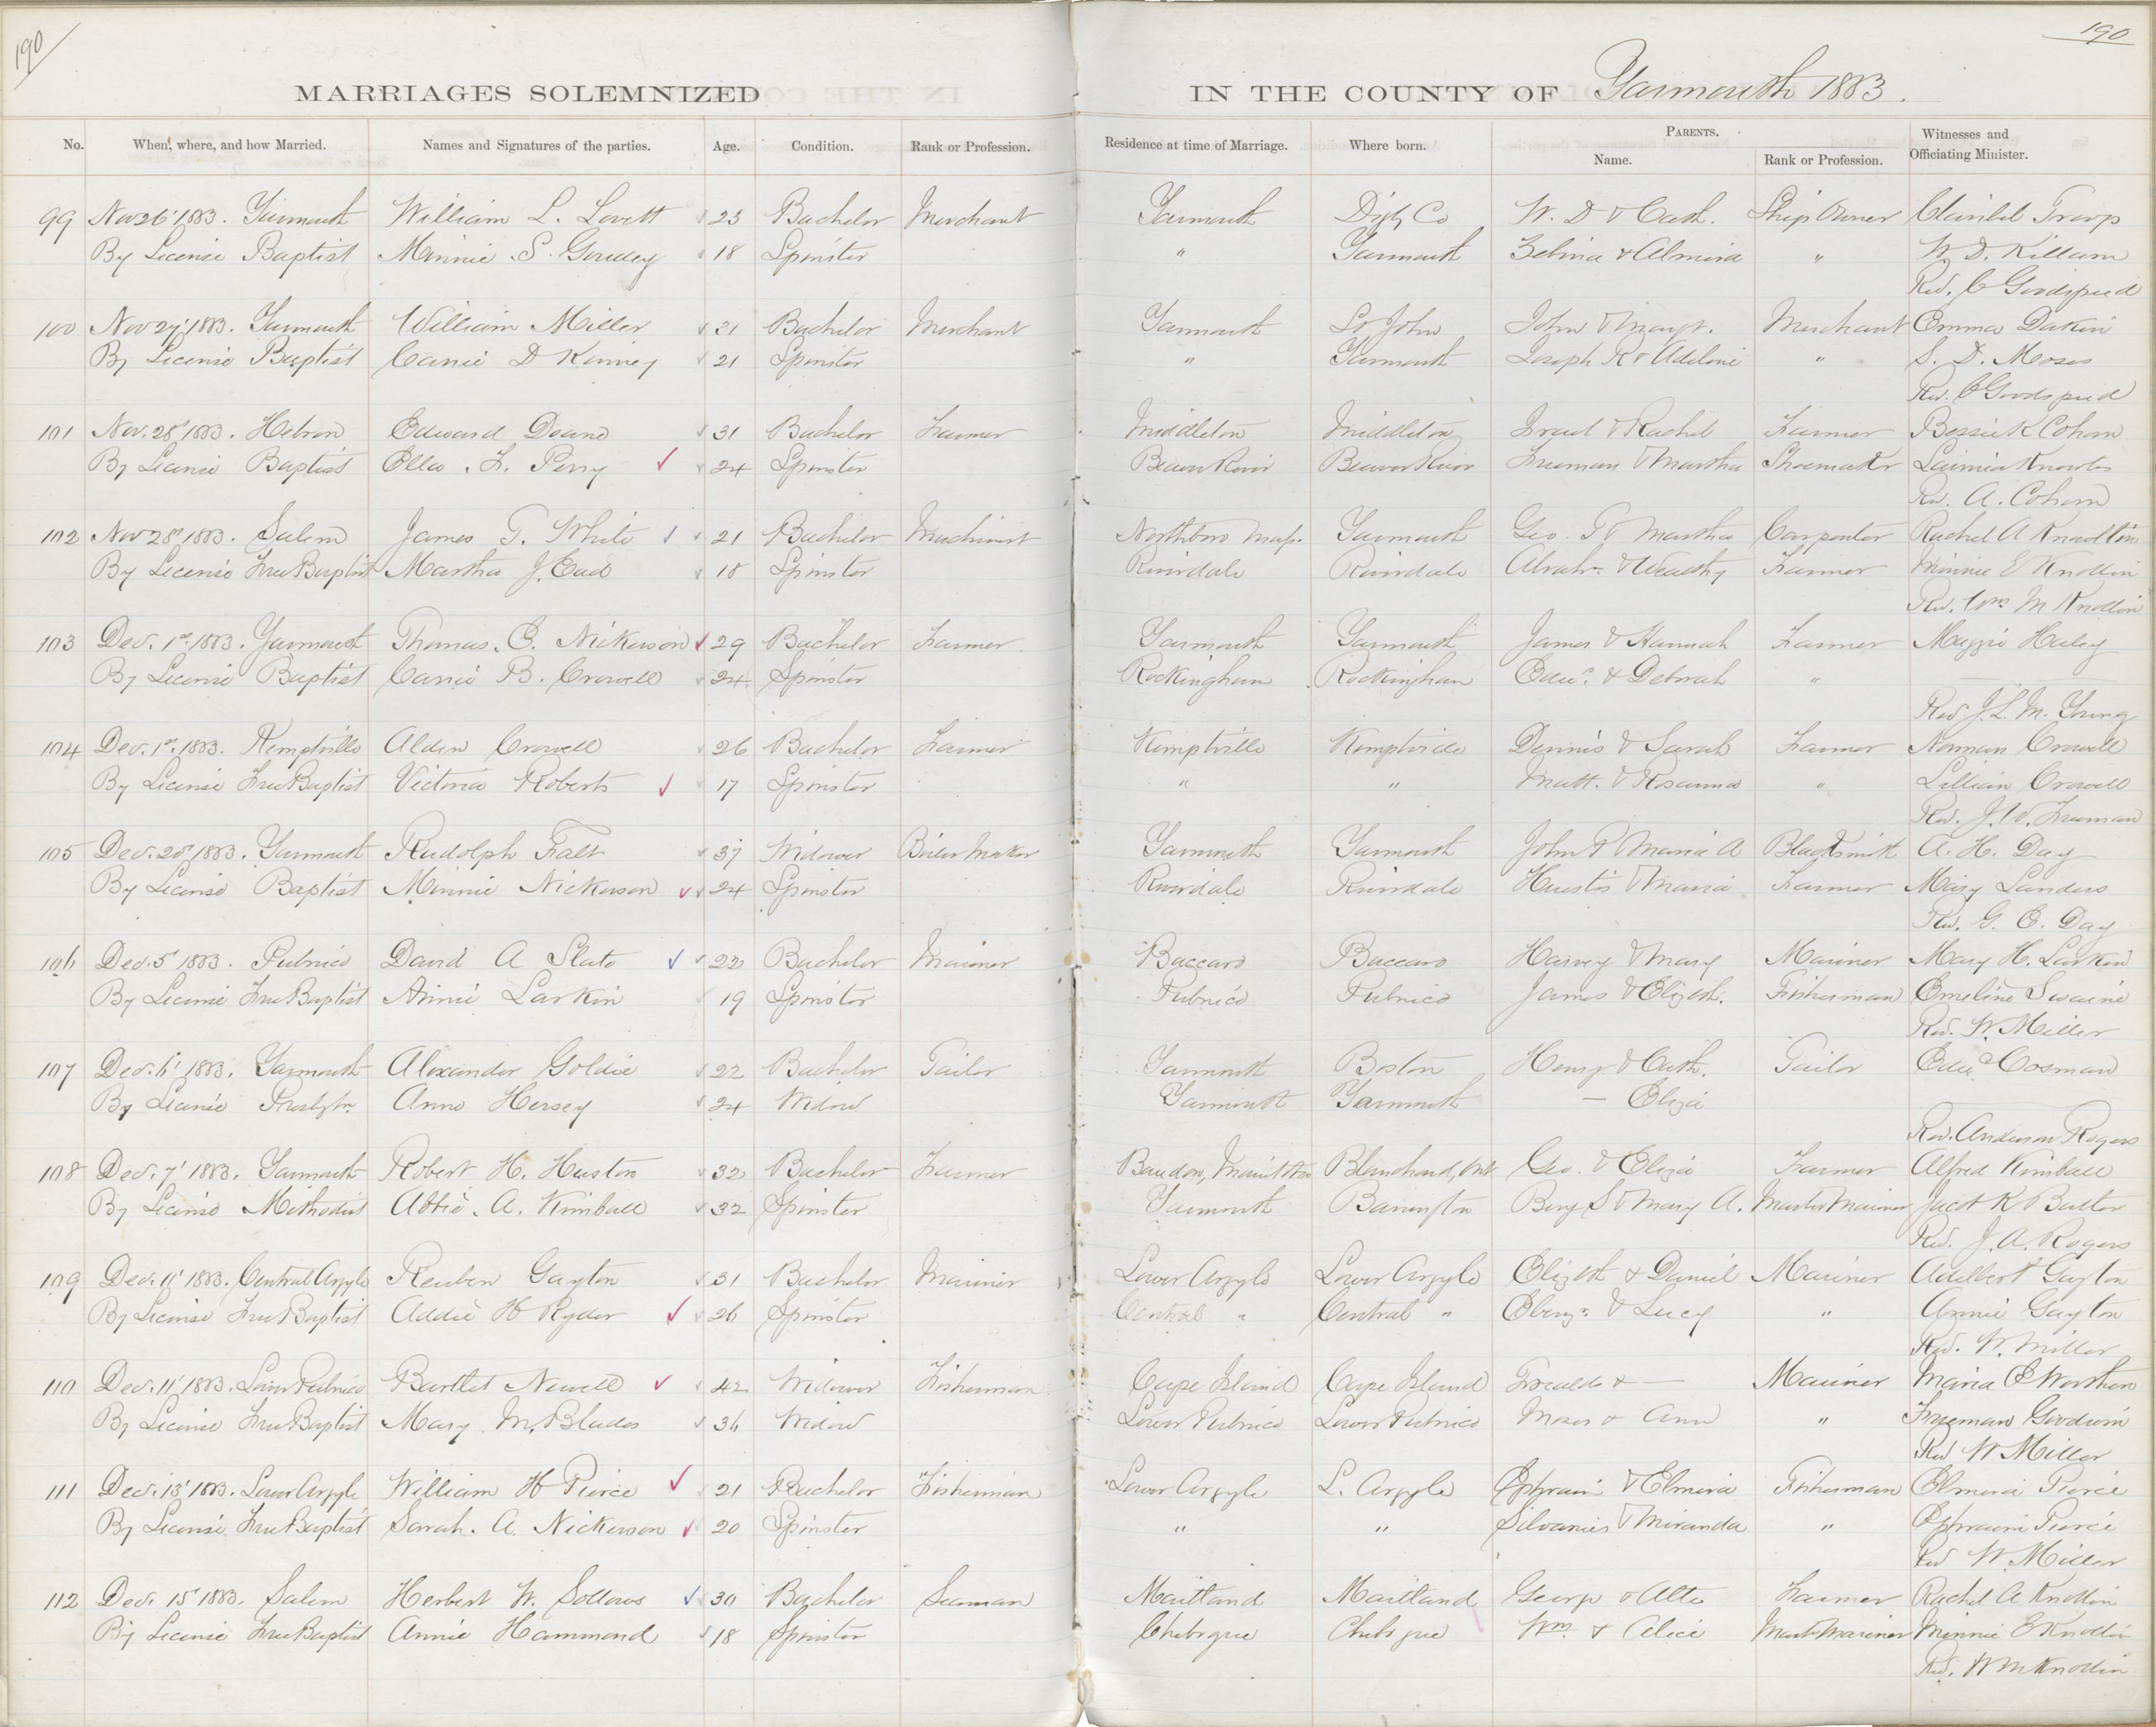 190
190
MARRIAGES SOLEMNIZED IN THE COUNTY OF Yarmouth 1883.
No. When, where, and how Married. Names and Signatures of the parties. Age. Condition. Rank or Profession. Residence at time of Marriage. Where born. PARENTS. Name. Rank or Profession. Witnesses and Officiating Minister.
99 Nov 26 1883. Yarmouth William L. Lovitt 23 Bachelor Merchant Yarmouth Digby Co W. D & Cath. Ship Owner
By License Baptist Minnie S. Goudey 18 Spinster " Yarmouth Zebina & Almira " W. D. Killam
Rev. C Goodspeed
100 Nov 27 1883. Yarmouth William Miller 31 Bachelor Merchant Yarmouth St John John & Margt. Merchant Emma Dakin
By License Baptist Carrie D Kinney 21 Spinster " Yarmouth Joseph R & Adeline " S. D. Moses
Rev. C Goodspeed
101 Nov. 28 1883. Hebron Edward Deane 31 Bachelor Farmer Middleton Middleton Israel & Rachel Farmer Bessie K Cohoon
By License Baptist Ella. F. Perry 24 Spinster Beaver River Beaver River Freeman & Martha Shoemaker Knowles
Rev. A. Cohoon
102 Nov 28 1883. Salem James T. White 21 Bachelor Machinist Northboro Mass. Yarmouth Geo. T & Martha Carpenter Rachel A Knowlton
By License Free Baptist Martha J. Ead 18 Spinster Riverdale Riverdale Abrahm. & Wealthy Farmer Minnie E Knollin
Rev. Wm M Knollin
103 Dec. 1st 1883. Yarmouth Thomas. E. Nickerson 29 Bachelor Farmer Yarmouth Yarmouth James & Hannah Farmer Maggie Haley
By License Baptist Carrie B. Crowell 24 Spinster Rockingham Rockingham Edwd. & Deborah "
Rev J. L. M. Young
104 Dec. 1st 1883. Kemptville Alden Crowell 26 Bachelor Farmer Kemptville Kemptville Dennis & Sarah Farmer Norman Crowell
By License Free Baptist Victoria Roberts 17 Spinster " " Matt. & Rosanna " Lillian Crowell
Rev. J. W. Freeman
105 Dec. 20 1883. Yarmouth Rudolph Falt 37 Widower Boiler Maker Yarmouth Yarmouth John P & Maria A Blacksmith A. H. Day
By License Baptist Minnie Nickerson 24 Spinster Riverdale Riverdale Huestis & Maria Farmer Mary Landers
Rev. G. E. Day
106 Dec. 5 1883. Pubnico David A Slate 22 Bachelor Mariner Baccaro Baccaro Harvey & Mary Mariner Mary H. Larkin
By License Free Baptist Annie Larkin 19 Spinster Pubnico Pubnico James & Elizbth. Fisherman Emeline Swaine
Rev. W. Miller
107 Dec. 6 1883. Yarmouth Alexander Goldie 22 Bachelor Tailor Yarmouth Boston Henry & Cath. Tailor Edwd Cosman
By License Presbytn. Anne Hersey 24 Widow Yarmouth Yarmouth — Eliza
Rev. Anderson Rogers
108 Dec. 7 1883. Yarmouth Robert H. Huston 32 Bachelor Farmer Brandon, Manitoba Blanchard, Ont Geo. & Eliza Farmer Alfred Kimball
By License Methodist Abbie. A. Kimball 32 Spinster Yarmouth Barrington Benj S & Mary A. Master Mariner Jacob K Butler
Rev. J. A. Rogers
109 Dec. 11 1883. Central Argyle Reuben Gayton 31 Bachelor Mariner Lower Argyle Lower Argyle Elizbth & Daniel Mariner Adelbert Gayton
By License Free Baptist Addie H Ryder 26 Spinster Central " Central " Ebenzr. & Lucy " Annie Gayton
Rev. W. Miller
110 Dec. 11 1883. Lower Pubnico Bartlet Newell 42 Widower Fisherman Cape Island Cape Island & — Mariner Maria E Worthen
By License Free Baptist Mary M. Blades 36 Widow Lower Pubnico Lower Pubnico Moses & Ann " Freeman Goodwin
Rev W Miller
111 Dec. 13 1883. Lower Argyle William H Pierce 21 Bachelor Fisherman Lower Argyle L. Argyle Ephraim & Elmira Fisherman Elmira Pierce
By License Free Baptist Sarah. A. Nickerson 20 Spinster " " Silvanus & Miranda " Ephraim Pierce
Rev W. Miller
112 Dec. 15 1883. Salem Herbert W. Sollows 30 Bachelor Seaman Maitland Maitland George & Alte Farmer Rachel A Knollin
By License Free Baptist Annie Hammond 18 Spinster Chebogue Chebogue Wm. & Alice Mast Mariner Minnie E Knollin
Rev. W M Knollin